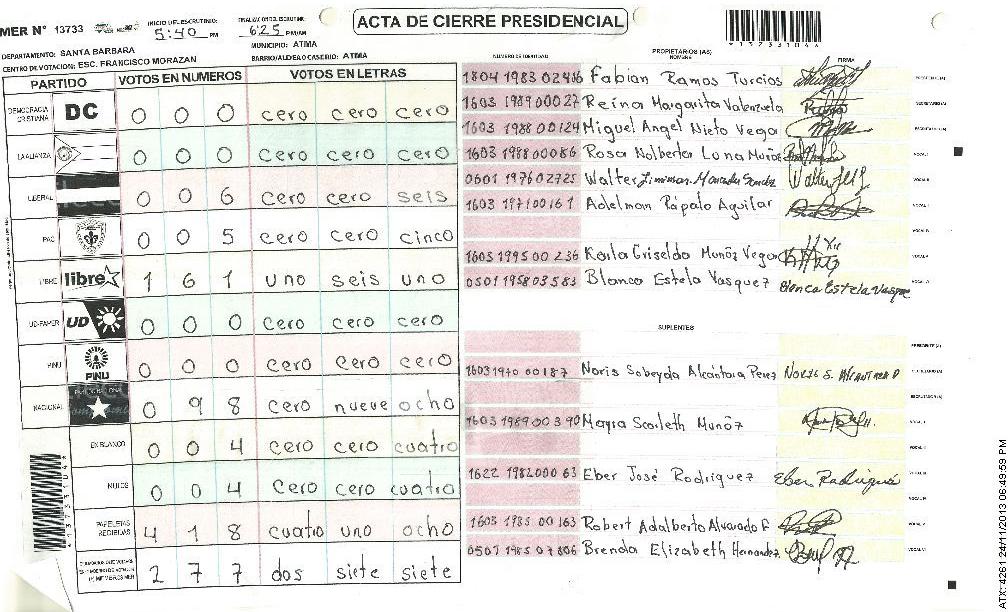 ACTA DE CIERRE PRESIDENCIAL
MER N° 13733
INICIO DEL ESCRUTINIO: 5:40 PM
FINALIZACION DEL ESCRUTINIO: 6:25 PM/AM
DEPARTAMENTO: SANTA BARBARA
MUNICIPIO: ATIMA
CENTRO DE VOTACION: ESC. FRANCISCO MORAZAN
BARRIO/ALDEA O CASERIO: ATIMA
PARTIDO VOTOS EN NUMEROS VOTOS EN LETRAS
DEMOCRACIA CRISTIANA DC 0 0 0 cero cero cero
LA ALIANZA 0 0 0 cero cero cero
LIBERAL 0 0 6 cero cero seis
PAC 0 0 5 cero cero cinco
LIBRE libre 1 6 1 uno seis uno
UD-FAPER UD 0 0 0 cero cero cero
PINU PINU 0 0 0 cero cero cero
NACIONAL 0 9 8 cero nueve ocho
EN BLANCO 0 0 4 cero cero cuatro
NULOS 0 0 4 cero cero cuatro
PAPELETAS RECIBIDAS 4 1 8 cuatro uno ocho
2 7 7 dos siete siete
NUMERO DE IDENTIDAD PROPIETARIOS (AS) NOMBRE FIRMA
1804 1983 02486 Fabian Ramos Turcios PRESIDENTE(A)
1603 1989 00027 Reina Margarita Valenzuela SECRETARIO(A)
1603 1988 00124 Miguel Angel Nieto Vega ESCRUTADOR(A)
1603 1988 00086 Rosa Nolberta Luna Muñoz VOCAL I
0601 1976 02725 Walter VOCAL II
1603 1971 00161 Adelman Rápalo Aguilar
1603 1995 00236 Karla Griselda Muñoz Vega
0501 1958 03583 Blanca Estela Vasquez Blanca Estela Vasque
SUPLENTES
PRESIDENTE (A)
1603 1970 00187 Noris Sobeyda Alcántara Perez Noris S. Alcantara P SECRETARIO (A)
ESCRUTADOR (A)
1603 1989 00390 Mayra Scarleth Muñoz VOCAL I
VOCAL II
1622 1982 00063 Eber José Rodriguez Eber Rodriguez VOCAL III
VOCAL IV
1603 1985 00163 Robert Adalberto Alvarado F. VOCAL V
0501 1985 07806 Brenda Elizabeth Hernandez VOCAL VI
*1373310４*
ATX: 4261 24/11/2013 06:49:59 PM